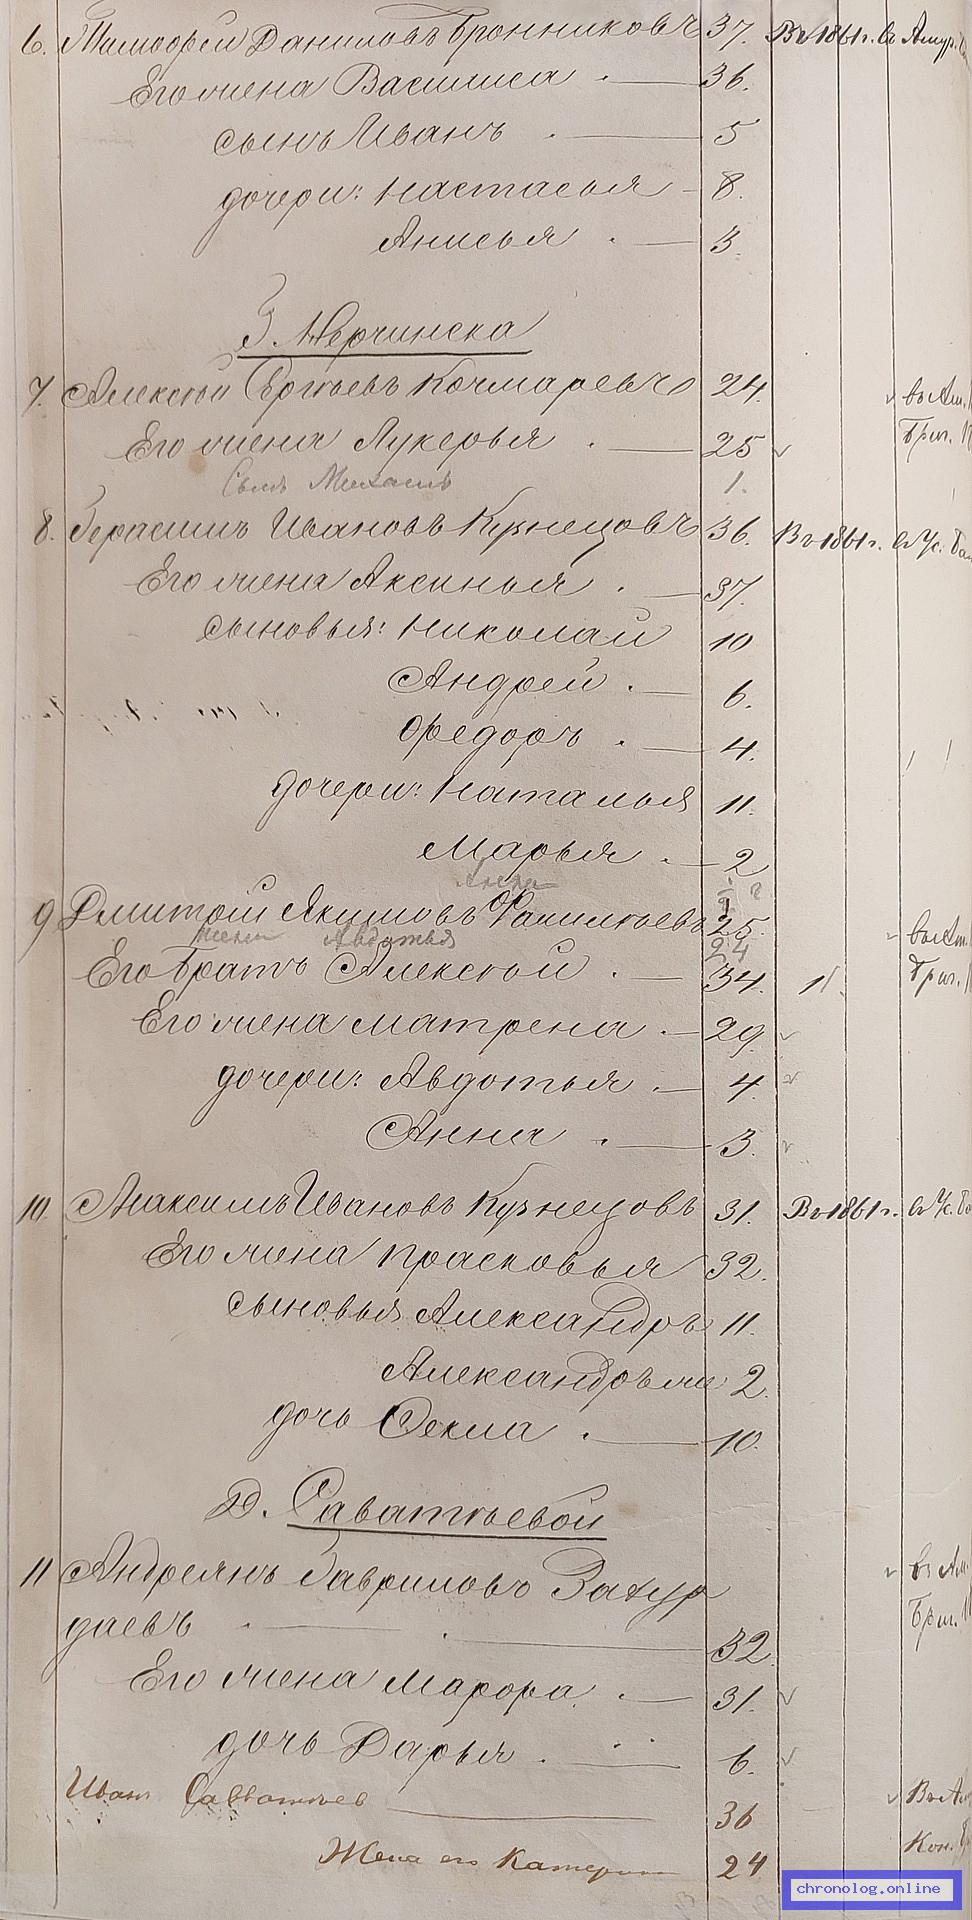 6. Тимофей Даниловъ Бронниковъ 37. Въ 1861 г. въ Амур.
Его жена Василиса 36.
сынъ Иванъ 5
дочери: Настасья 8.
Анисья 3.
З. Нерчинска
7. Алексѣй Сергѣевъ Кочмаревъ 24. въ Ам.
Его жена Лукерья 25
Сынъ Михаилъ 1.
8. Герасимъ Ивановъ Кузнецовъ 36. Въ 1861 г. въ Ус. Ба
Его жена Аксинья 37.
сыновья: Николай 10
Андрей 6.
Федоръ 4.
дочери: Наталья 11.
Марья 2
9 Дмитрій Якимовъ 25. въ Ам.
жена Авдотья 24
Его братъ Алексѣй 34. 1.
Его жена Матрена 29.
дочери: Авдотья 4.
Анна 3.
10. Максимъ Ивановъ Кузнецовъ 31. Въ 1861 г. въ Ус. Ба
Его жена Прасковья 32.
сыновья Александръ 11.
Александръ же 2.
дочь Фекла 10.
Д. Саватѣевой
11 Андреянъ Гавриловъ въ Ам.
даевъ 32.
Его жена Марфа 31.
дочь Дарья 6.
Иванъ Савватѣев 36 Въ Ам
Жена его Катерин 24 Кон.
chronolog.online